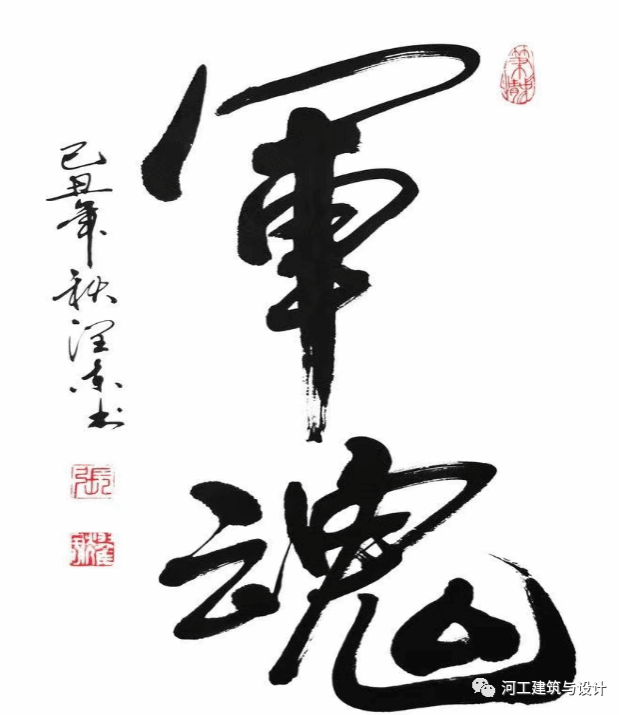 軍魂
己丑年秋
书
张
河工建筑与设计